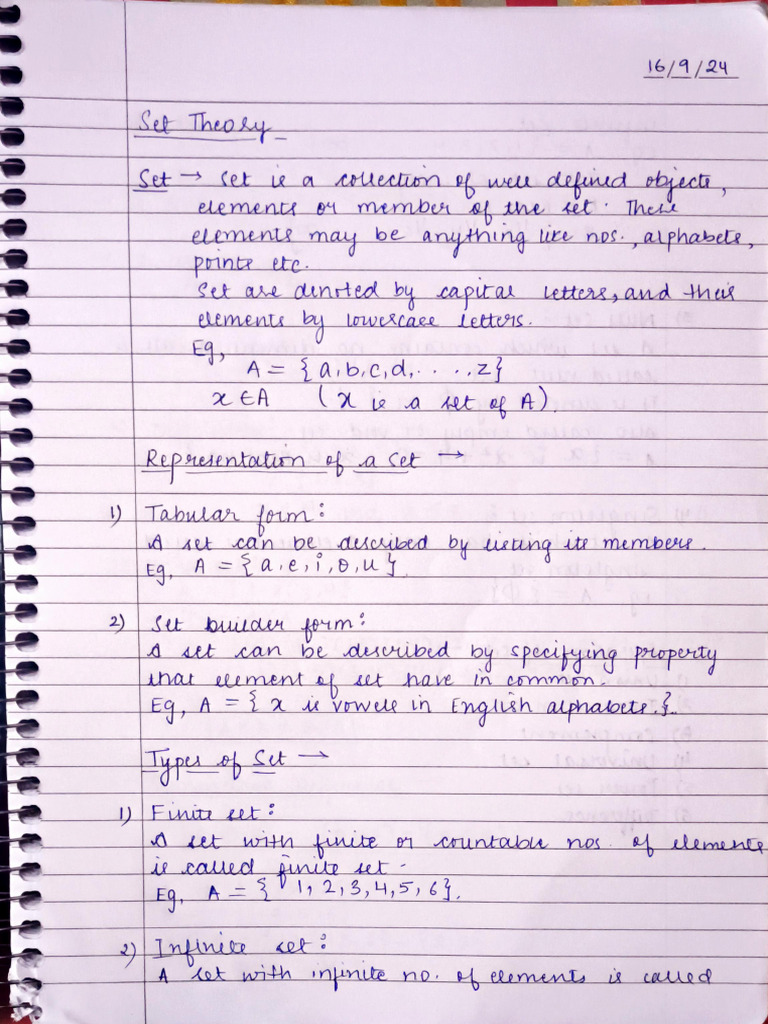 16/9/24
Set Theory
Set → Set is a collection of well defined objects,
elements or member of the set. These
elements may be anything like nos., alphabets,
points etc.
Set are denoted by capital letters, and their
elements by lowercase letters.
Eg,
A = {a,b,c,d,.....z}
x ∈ A (x is a set of A).
Representation of a Set →
1) Tabular form:
A set can be described by listing its members.
Eg, A = {a, e, i, o, u}.
2) Set builder form:
A set can be described by specifying property
that element of set have in common.
Eg, A = { x is vowels in English alphabets.}.
Types of Set →
1) Finite set:
A set with finite or countable nos. of elements
is called finite set.
Eg, A = { 1, 2, 3, 4, 5, 6}.
2) Infinite set:
A set with infinite no. of elements is called